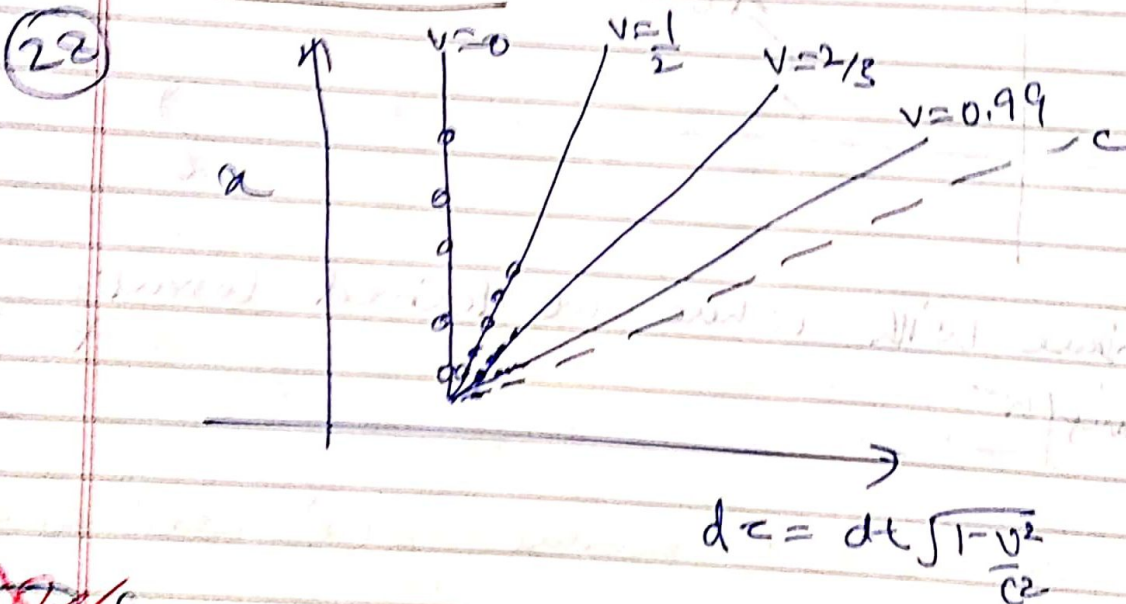 22
v=0
v=1/2
v=2/3
v=0.99
c
x
dτ = dt √1-v²/c²